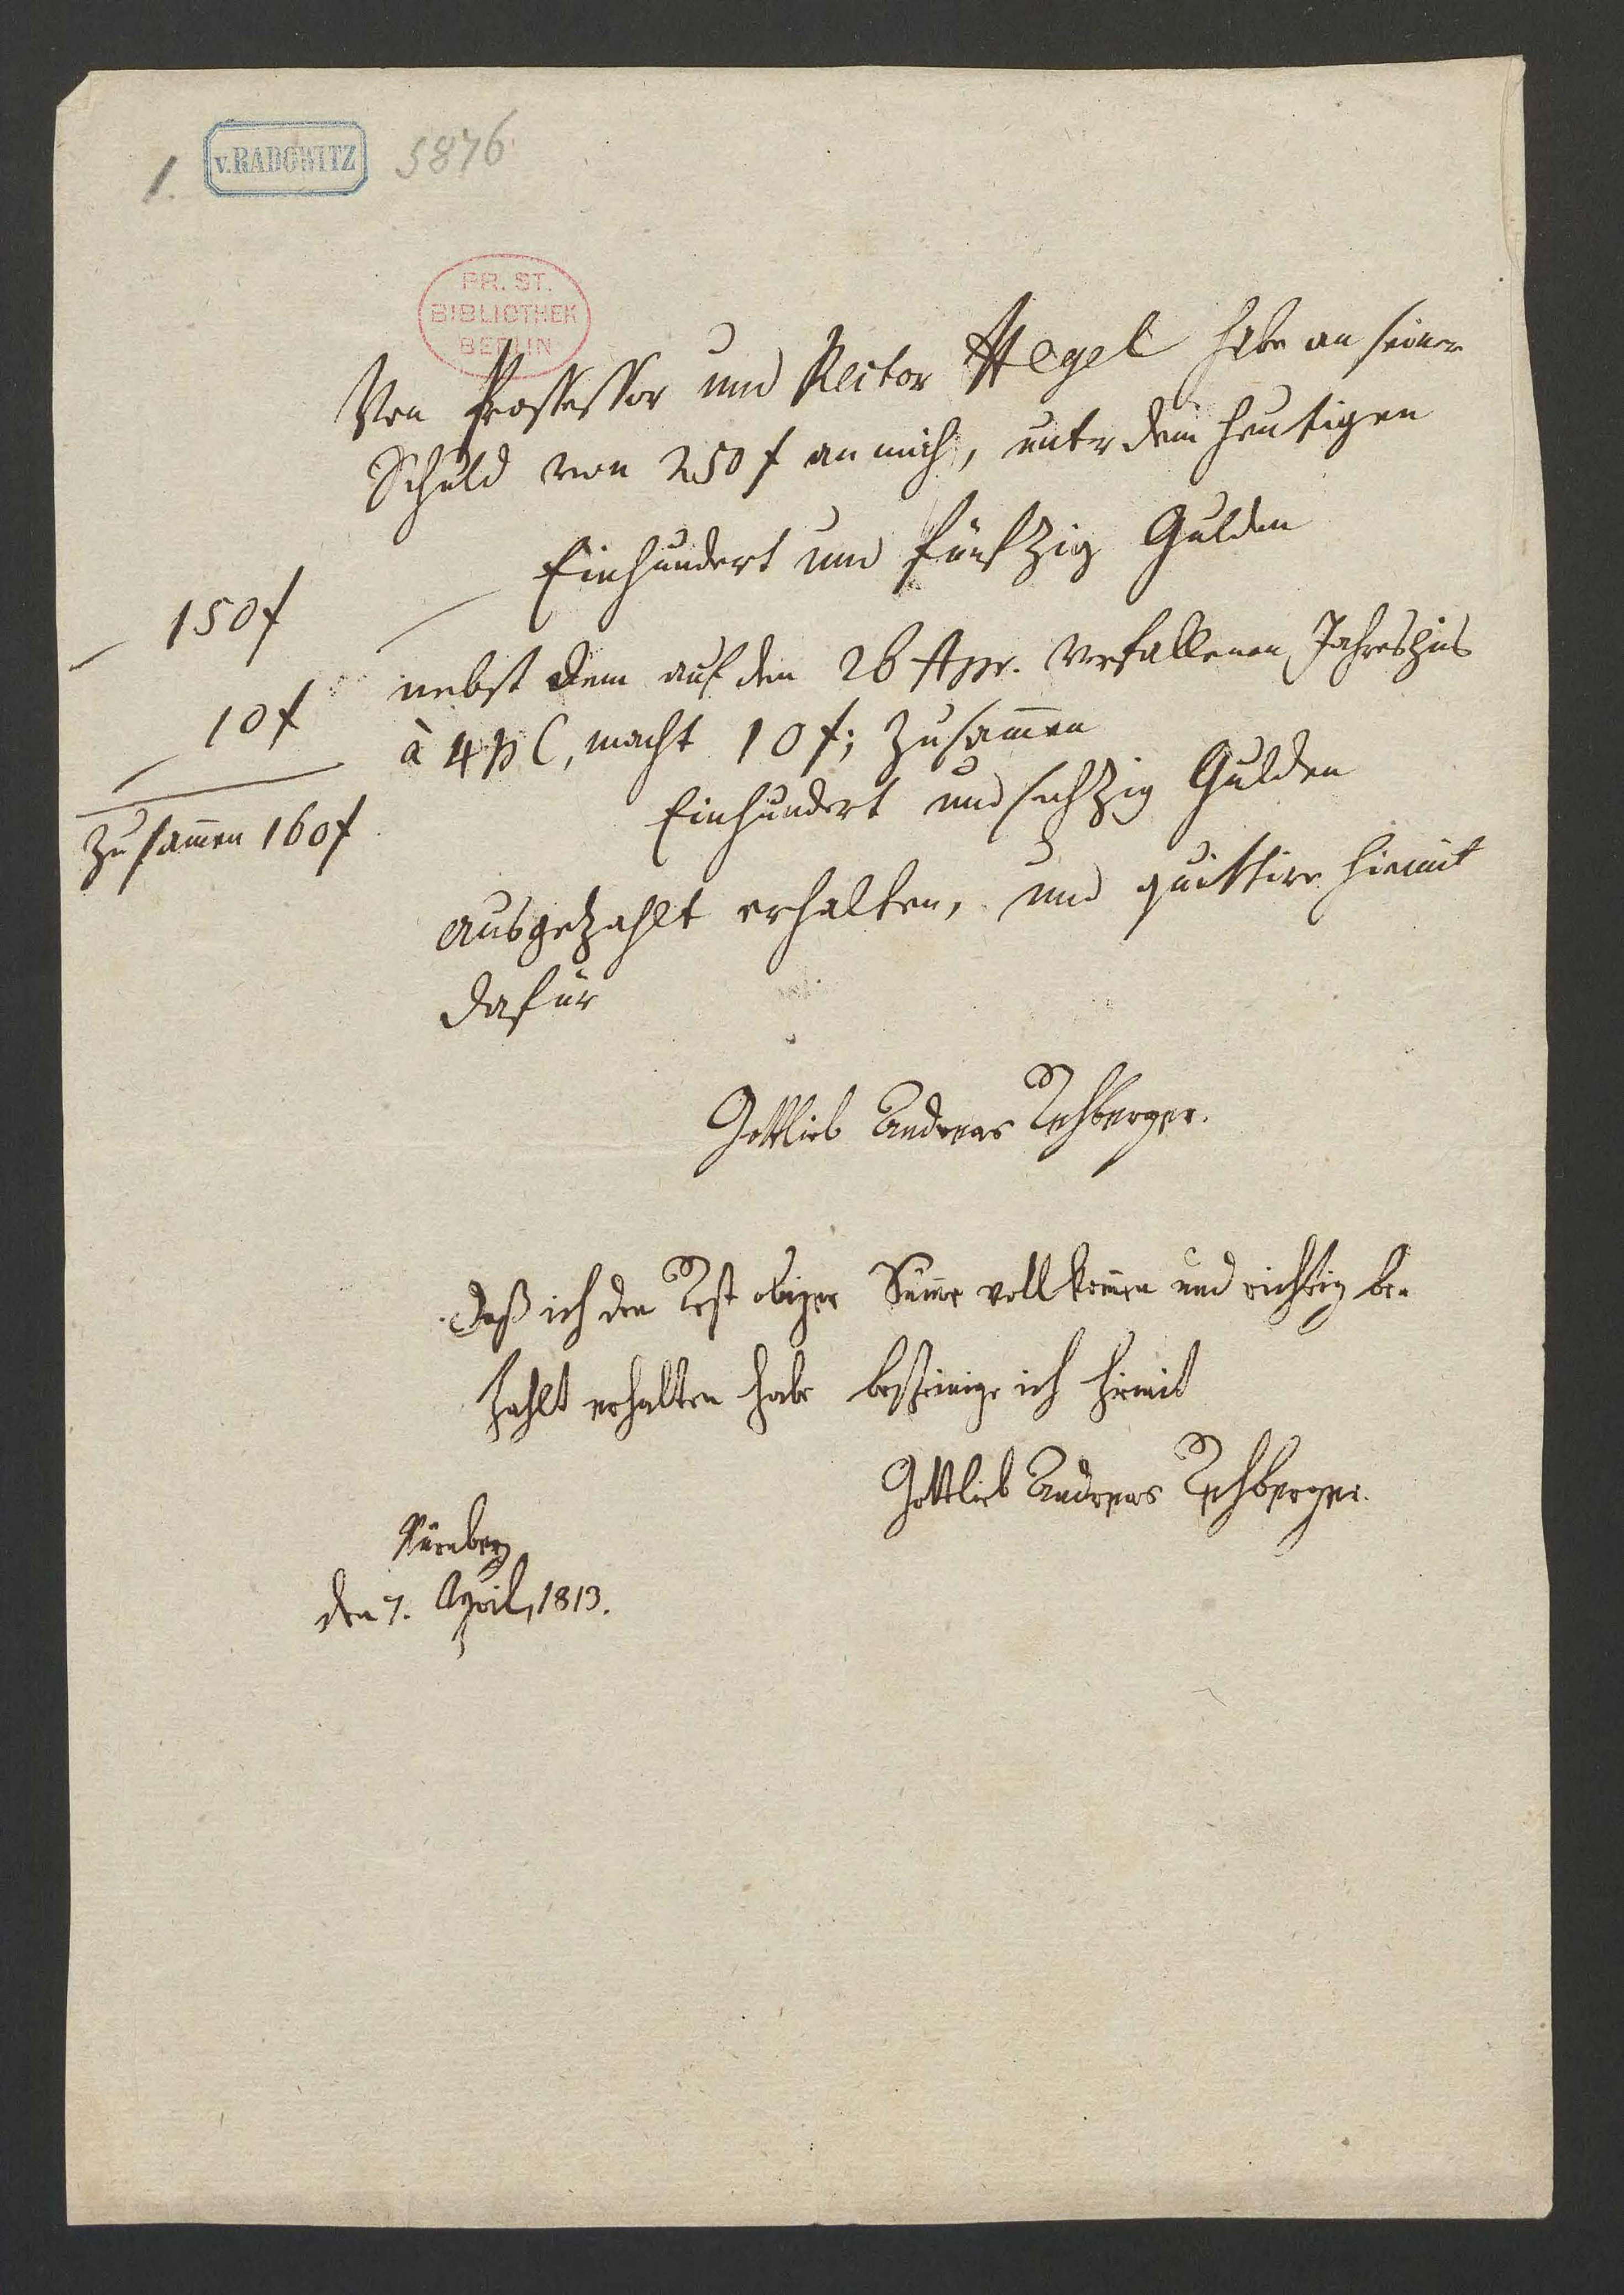 1. v. RADOWITZ 5876
PR. ST.
BIBLIOTHEK
BERLIN
Von Professor und Rector Hegel habe an seiner
Schuld von 250 f an mich, unter dem heutigen
Einhundert und fünfzig Gulden
150 f
nebst dem auf den 26 Apr. verfallenen Jahreszins
10 f
à 4 p C, macht 10 f; zusam̄en
Einhundert und sechzig Gulden
Zusam̄en 160 f
ausgezahlt erhalten, und quittire hiemit
dafür
Gottlieb Andreas Rehberger.
Daß ich den Rest obiger Sum̄e vollkom̄en und richtig be-
zahlt erhalten habe bescheinige ich hiemit
Gottlieb Andreas Rehberger.
Nürnberg
den 7. April, 1813.